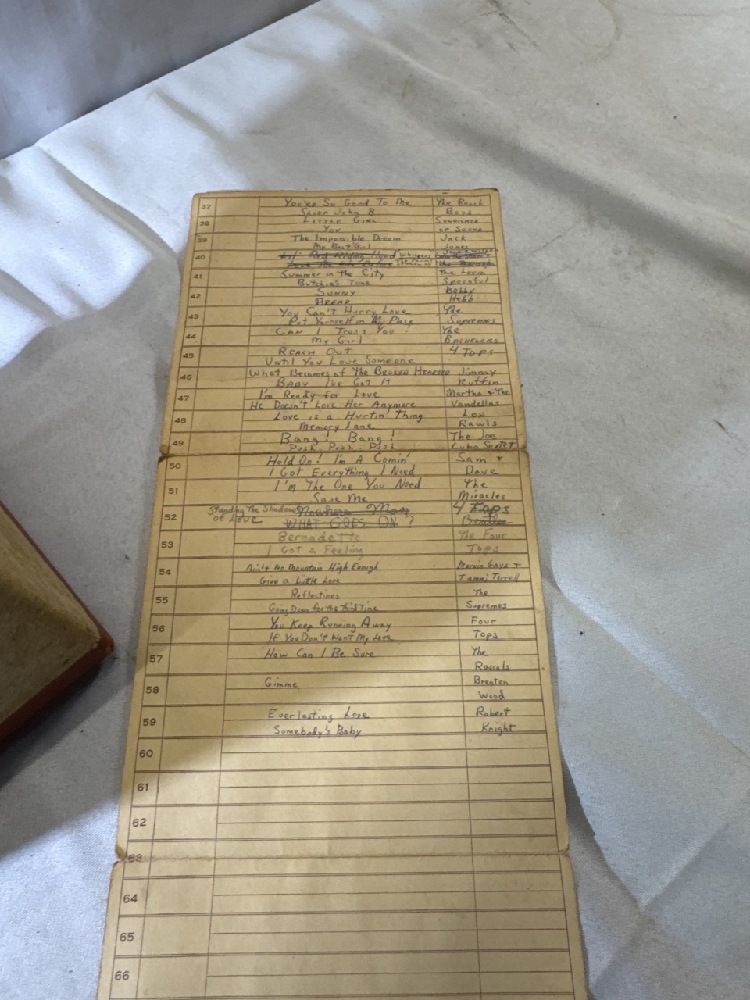 37 You're So Good To Me The Beach
Boys
38 Little Girl Syndicate
You of Sound
39 The Impossible Dream Jack
My Best Girl Jones
40 Lil' Red Riding Hood
Love
41 Summer in the City The Lovin
Butchie's Tune Spoonful
42 Sunny Bobby
Hebb
43 You Can't Hurry Love The
Put Yourself in My Place Supremes
44 Can I Trust You? The
My Girl Bachelors
45 Reach Out 4 Tops
Until You Love Someone
46 What Becomes of The Broken Hearted Jimmy
Baby I've Got It Ruffin
47 I'm Ready for Love Martha & The
He Doesn't Love Her Anymore Vandellas
48 Love is a Hurtin' Thing Lou
Memory Lane Rawls
49 Bang! Bang! The Joe
Push, Push, Push Cuba Sextet
50 Hold On! I'm A Comin' Sam &
I Got Everything I Need Dave
51 I'm The One You Need The
Save Me Miracles
52 Standing The Shadows Nowhere Man 4 Tops
of Love WHAT GOES ON? Beatles
53 Bernadette The Four
I Got a Feeling Tops
54 Ain't No Mountain High Enough Marvin Gaye &
Give a Little Love Tammi Terrell
55 Reflections The
Going Down for the Third Time Supremes
56 You Keep Running Away Four
If You Don't Want My Love Tops
57 How Can I Be Sure The
Rascals
58 Gimme Brenton
Wood
59 Everlasting Love Robert
Somebody's Baby Knight
60
61
62
63
64
65
66